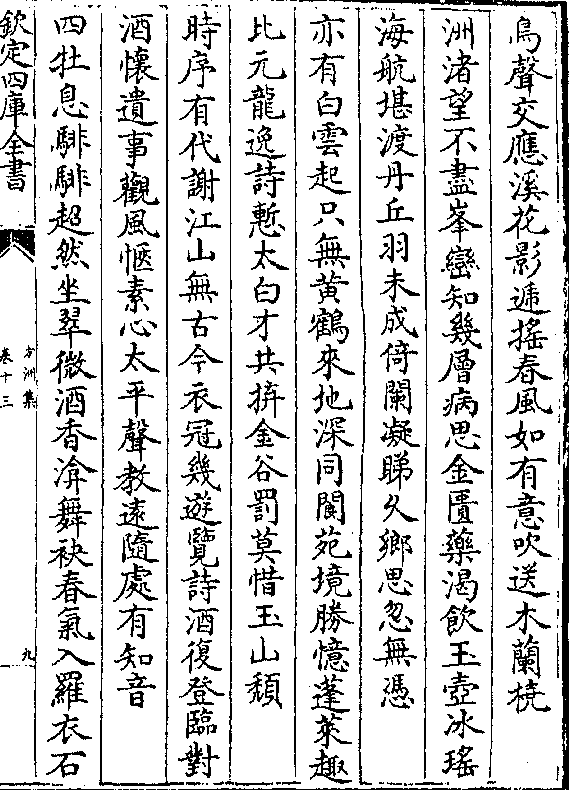 鳥聲交應溪花影遞摇春風如有意吹送木蘭橈
洲渚望不盡峯巒知幾層病思金匱藥渴飲玉壺冰瑤
海航堪渡丹丘羽未成倚闌凝睇久鄉思忽無憑
亦有白雲起只無黄鶴來地深同閬苑境勝憶蓬萊趣
比元龍逸詩慙太白才共拚金谷罰莫惜玉山頽
時序有代謝江山無古今衣冠幾遊覽詩酒復登臨對
酒懷遺事觀風愜素心太平聲教遠隨處有知音
四牡息騑騑超然坐翠微酒香渰舞袂春氣入羅衣石
欽定四庫全書
方洲集
卷十三
九